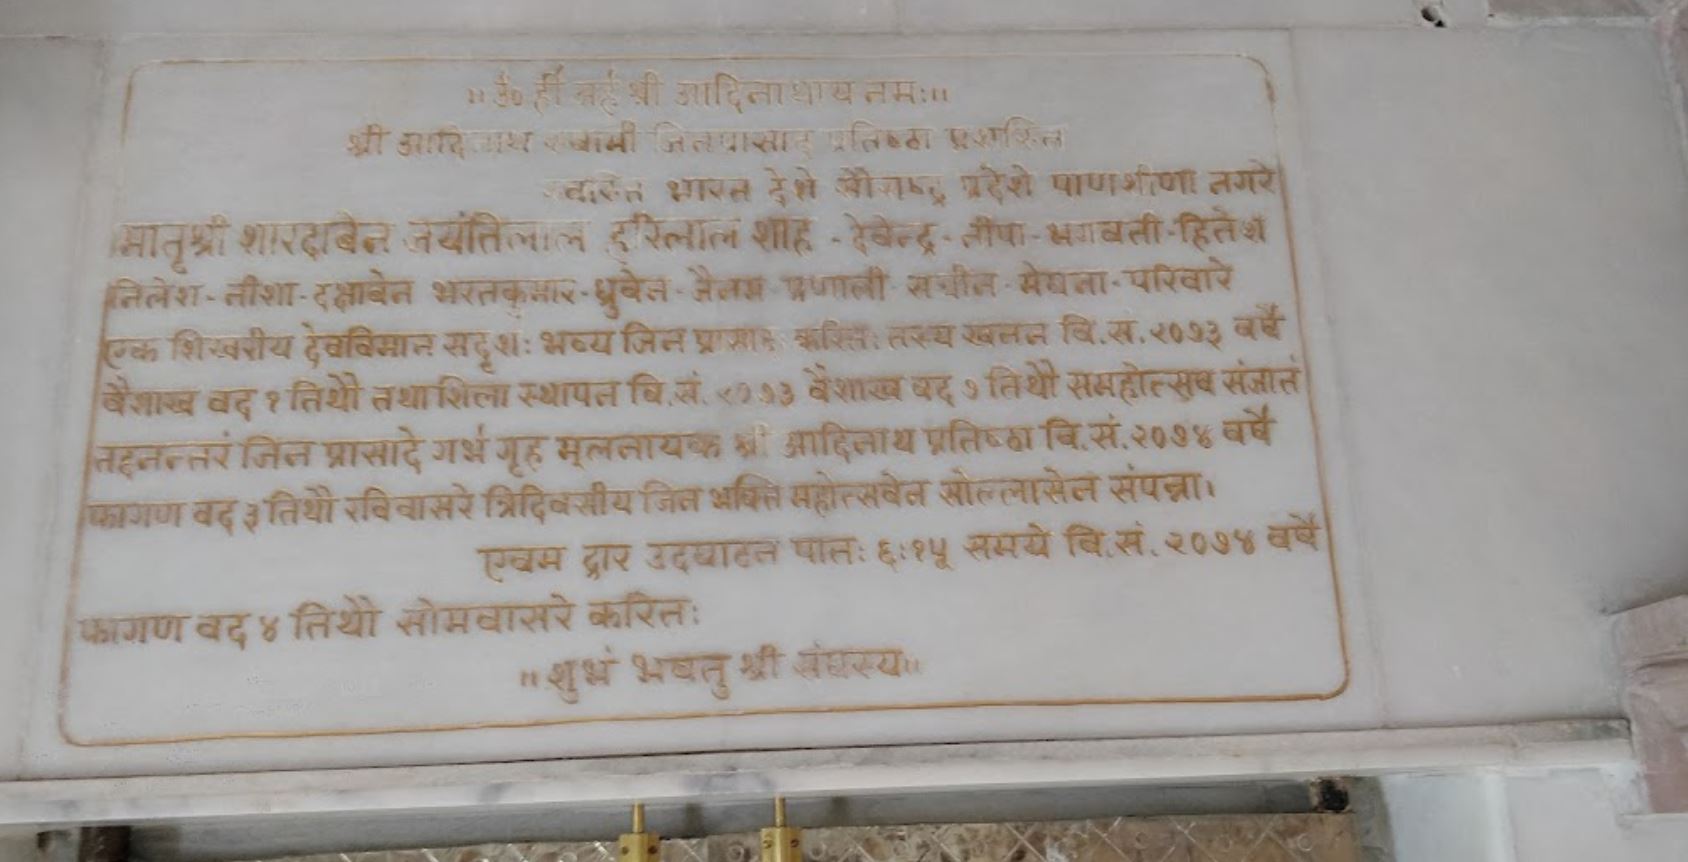 ॥ ॐ ह्रीँ अर्हँ श्री आदिनाथाय नमः॥
श्री आदिनाथ स्वामी जिनप्रासाद प्रतिष्ठा प्रशस्ति
स्वस्ति भारत देशे सौराष्ट्र प्रदेशे पाणशीणा नगरे
मातृश्री शारदाबेन जयंतिलाल हरिलाल शाह - देवेन्द्र - नीपा - भगवती - हितेश
निलेश - नीशा - दक्षाबेन भरतकुमार - ध्रुवेन - जैनम प्रणाली सचीन - मेघना - परिवारे
एक शिखरीय देवविमान सदृशः भव्य जिन प्रासाद करितः तस्य खनन वि.सं. २०७३ वर्षे
वैशाख वद १ तिथौ तथा शिला स्थापन वि.सं. २०७३ वैशाख वद ७ तिथौ समहोत्सव संजातं
तदनन्तरं जिन प्रासादे गर्भ गृह मूलनायक श्री आदिनाथ प्रतिष्ठा वि.सं. २०७४ वर्षे
फागण वद ३ तिथौ रविवासरे त्रिदिवसीय जिन भक्ति महोत्सवेन सोल्लासेन संपन्ना।
एवम द्वार उदघाटन पातः ६:१५ समये वि.सं. २०७४ वर्षे
फागण वद ४ तिथौ सोमवासरे करितः
॥ शुभं भवतु श्री संघस्य॥